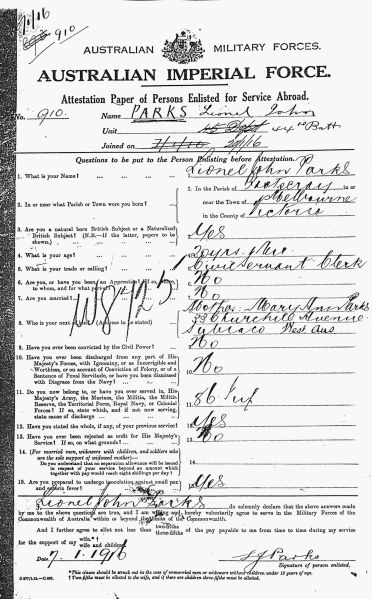 910
AUSTRALIAN MILITARY FORCES.
AUSTRALIAN IMPERIAL FORCE.
Attestation Paper of Persons Enlisted for Service Abroad.
No. 910. Name PARKS Lionel John
Unit 44th Batt
Joined on 7/1/16
Questions to be put to the Person Enlisting before Attestation.
1. What is your Name? 1. Lionel John Parks
2. In or near what Parish or Town were you born? 2. In the Parish of Footscray in or
near the Town of Melbourne
in the County of Victoria
3. Are you a natural born British Subject or a Naturalised
British Subject? (N.B.—If the latter, papers to be
shown.) 3. Yes
4. What is your age? 4.
5. What is your trade or calling? 5. Civil Servant Clerk
6. Are you, or have you been an Apprentice? If so, where,
to whom, and for what period? 6. No
7. Are you married? 7. No
8. Who is your next of kin? (Address to be stated) 8. Mother Mary Ann Parks
Churchill Avenue
Subiaco West Aus
9. Have you ever been convicted by the Civil Power? 9. No
10. Have you ever been discharged from any part of His
Majesty's Forces, with Ignominy, or as Incorrigible and
Worthless, or on account of Conviction of Felony, or of a
Sentence of Penal Servitude, or have you been dismissed
with Disgrace from the Navy? 10. No
11. Do you now belong to, or have you ever served in, His
Majesty's Army, the Marines, the Militia, the Militia
Reserve, the Territorial Force, Royal Navy, or Colonial
Forces? If so, state which, and if not now serving,
state cause of discharge 11. 86 Inf
12. Have you stated the whole, if any, of your previous service? 12. Yes
13. Have you ever been rejected as unfit for His Majesty's
Service? If so, on what grounds? 13. No
14. (For married men, widowers with children, and soldiers
who are the sole support of widowed mother)—
Do you understand that no separation allowance will be issued
in respect of your service beyond an amount which
together with pay would reach eight shillings per day? 14.
15. Are you prepared to undergo inoculation against small pox
and enteric fever? 15. Yes
I, Lionel John Parks do solemnly declare that the above answers made
by me to the above questions are true, and I am willing and hereby voluntarily agree to serve in the Military Forces of the
Commonwealth of Australia within or beyond the limits of the Commonwealth.
And I further agree to allot not less than two-fifths
three-fifths of the pay payable to me from time to time during my service
for the support of my wife.
wife and children.
Date 7.1.1916 L J Parks
Signature of person enlisted.
* This clause should be struck out in the case of unmarried men or widowers without children under 18 years of age.
† Two fifths must be allotted to the wife, and if there are children three-fifths must be allotted.